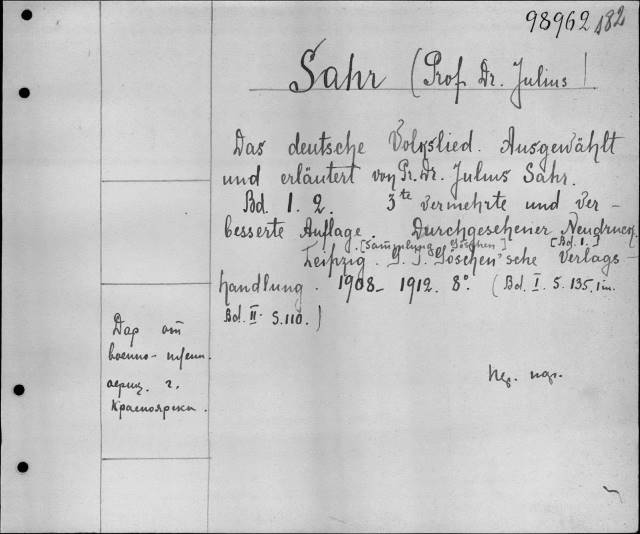 98962 182
Sahr (Prof Dr. Julius)
Das deutsche Volkslied. Ausgewählt
und erläutert von Pr. Dr. Julius Sahr.
Bd. 1. 2. 3te vermehrte und ver-
besserte Auflage. Durchgesehener Neudruck.
[Sammlung Göschen] [Bd. 1.]
Leipzig. G. J. Göschen'sche Verlags-
handlung. 1908- 1912. 8°. (Bd. I. S. 135. 1
Bd. II. S. 110.)
Дар от
военно- плен.
г.
Красноярска.